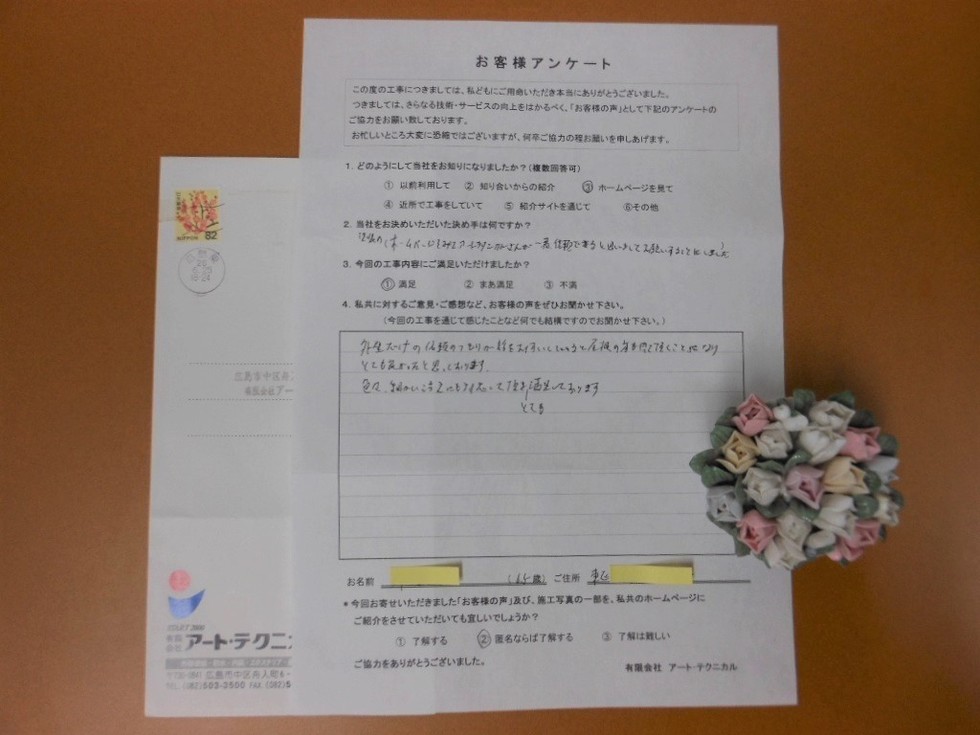 お客様アンケート
この度の工事につきましては、私どもにご用命いただき本当にありがとうございました。
つきましては、さらなる技術・サービスの向上をはかるべく、「お客様の声」として下記のアンケートの
ご協力をお願い致しております。
お忙しいところ大変に恐縮ではございますが、何卒ご協力の程お願いを申しあげます。
1. どのようにして当社をお知りになりましたか？(複数回答可)
① 以前利用して ② 知り合いからの紹介 ③ ホームページを見て
④ 近所で工事をしていて ⑤ 紹介サイトを通じて ⑥その他
2. 当社をお決めいただいた決め手は何ですか？
一番信頼できると思いましてお願いすることにしました
3. 今回の工事内容にご満足いただけましたか？
① 満足 ② まあ満足 ③ 不満
4. 私共に対するご意見・ご感想など、お客様の声をぜひお聞かせ下さい。
(今回の工事を通じて感じたことなど何でも結構ですのでお聞かせ下さい。)
外壁だけの依頼のつもりが
とても良かったと思っております
満足しております
とても
お名前 (65歳) ご住所
＊今回お寄せいただきました「お客様の声」及び、施工写真の一部を、私共のホームページに
ご紹介をさせていただいても宜しいでしょうか？
① 了解する ② 匿名ならば了解する ③ 了解は難しい
ご協力をありがとうございました。
有限会社 アート・テクニカル
NIPPON 82
広島市中区舟入
有限会社アー
有限会社 アート・テクニ
広島市中区舟入町6-
TEL (082)503-2500 FAX (082)5